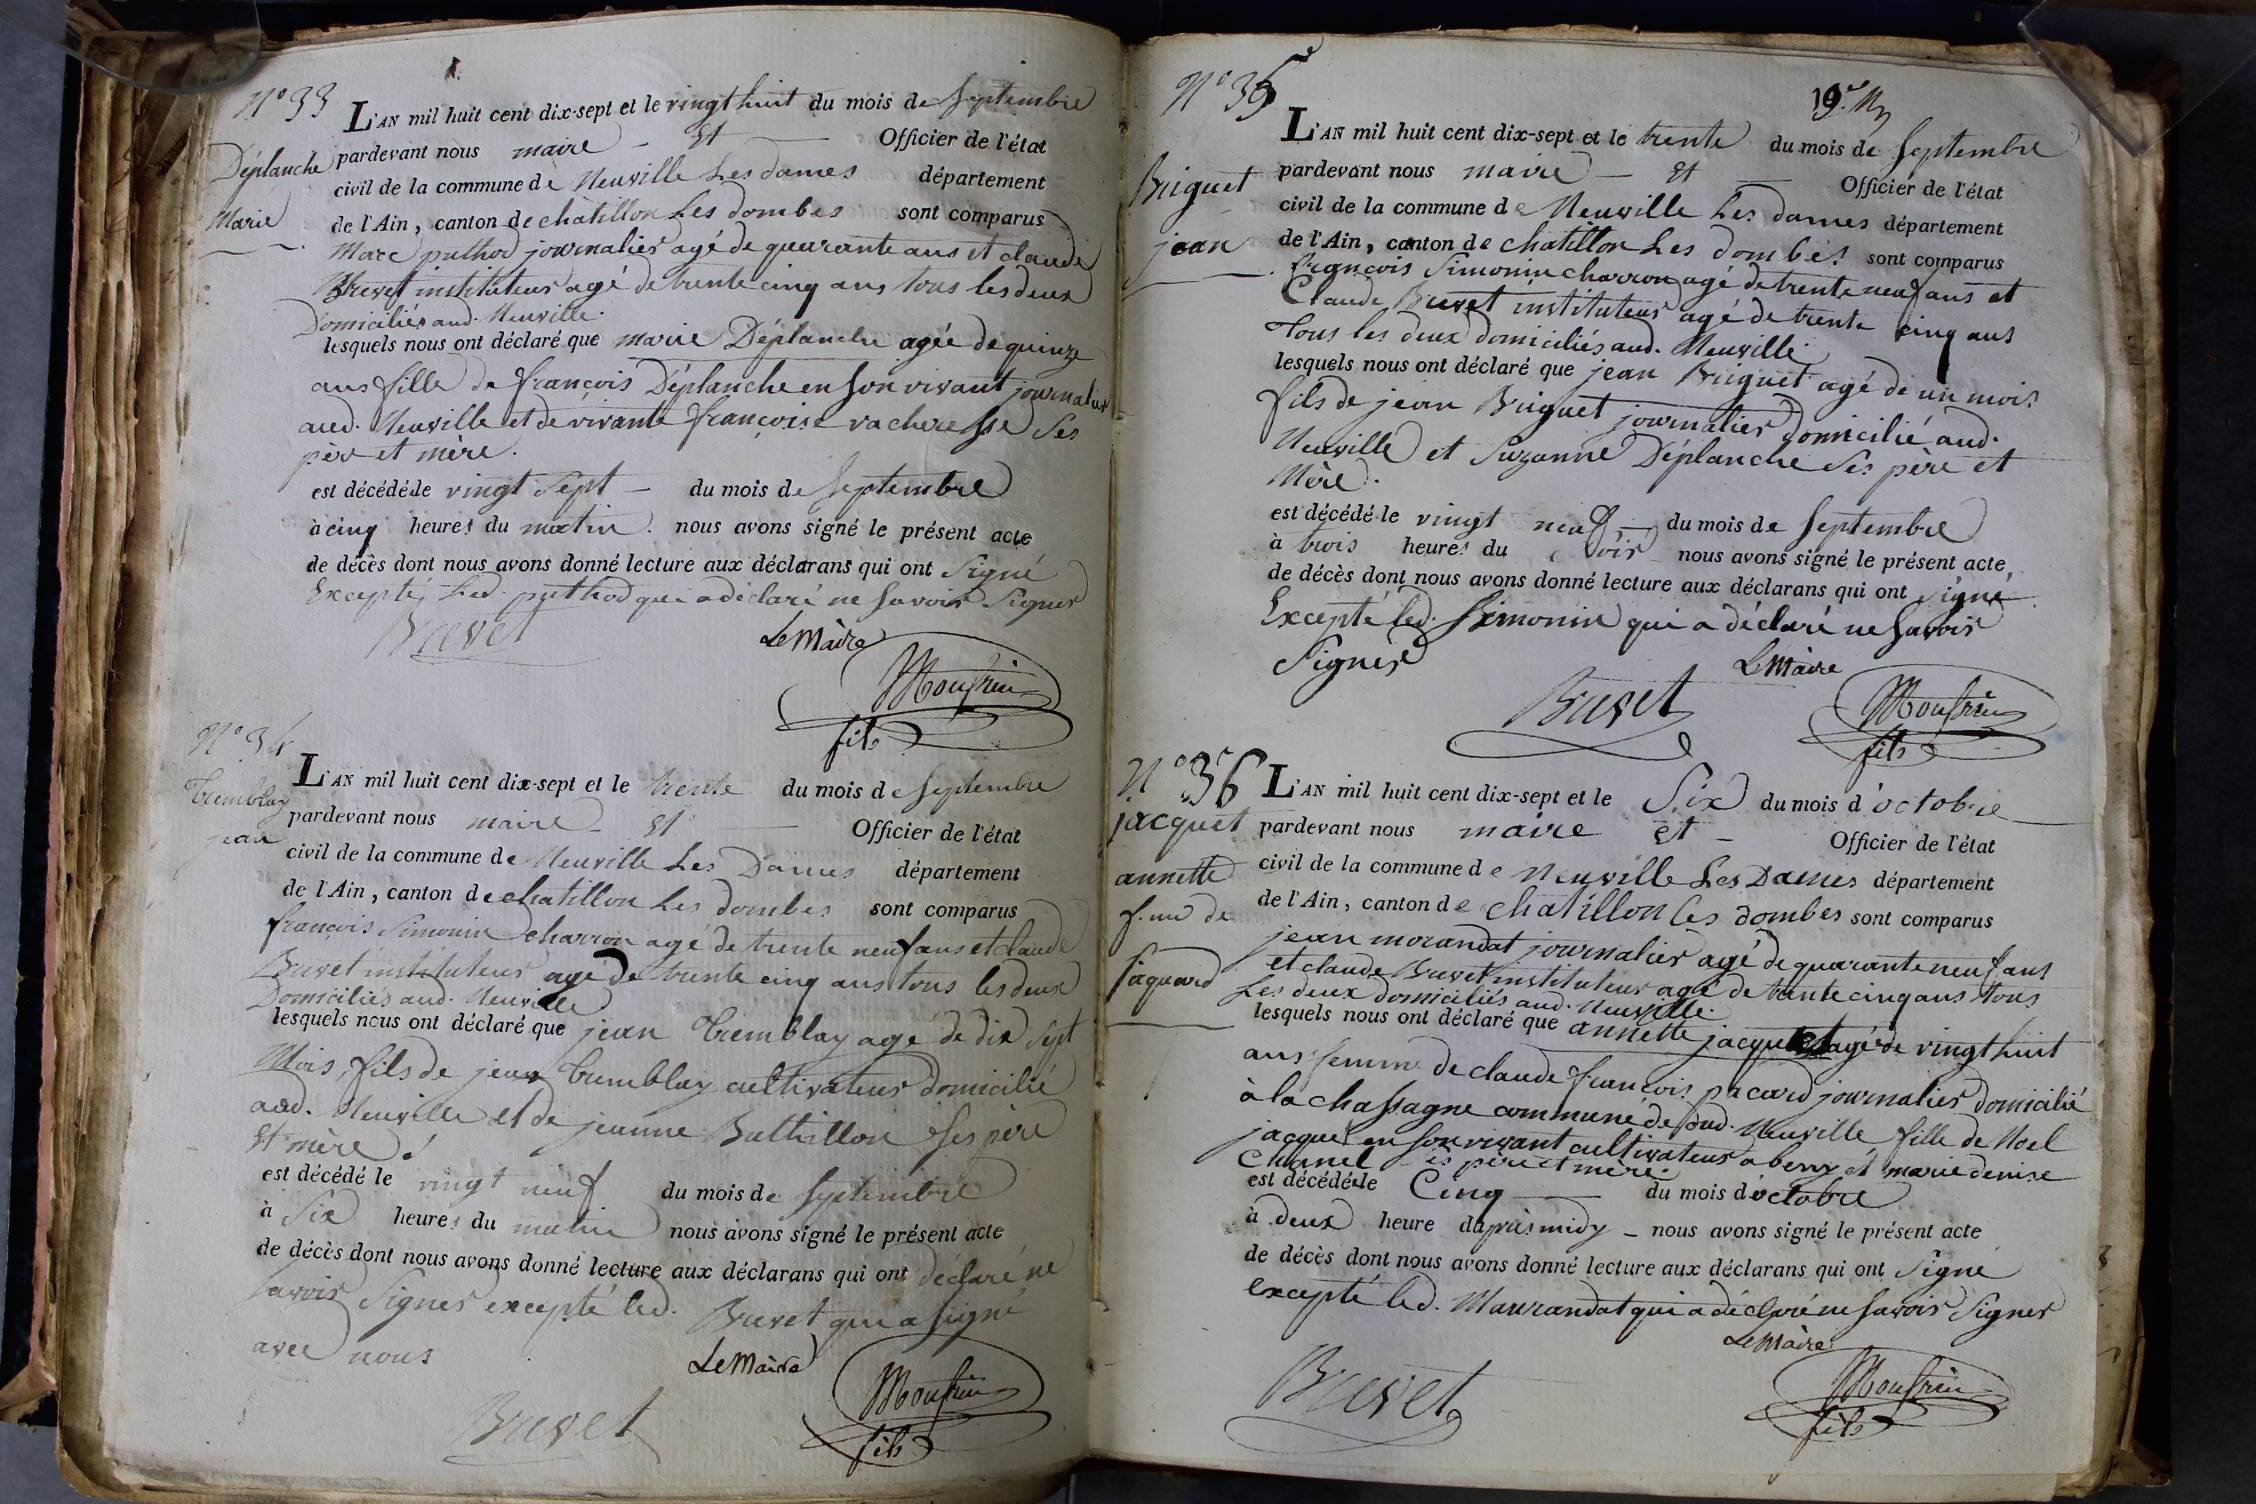 N° 33
Déplanche
Marie
L'AN mil huit cent dix-sept et le vingt huit du mois de Septembre
pardevant nous maire - Et - Officier de l'état
civil de la commune de Neuville Les dames département
de l'Ain, canton de châtillon Les dombes sont comparus
Marc puthod journalier agé de quarante ans et claude
Brevet instituteur agé de trente cinq ans tous les deux
Domiciliés aud. Neuville.
lesquels nous ont déclaré que marie Déplanche agée de quinze
ans fille de françois Déplanche en son vivant journalier
aud. Neuville et de vivante françoise vacheresse Ses
père et mère.
est décédée le vingt Sept - du mois de Septembre
à cinq heures du matin. nous avons signé le présent acte
de décès dont nous avons donné lecture aux déclarans qui ont Signé
Excepté Led. puthod qui a déclaré ne Savoir Signer
Brevet
Le Maire
fils
N° 34
Tremblay
jean
L'AN mil huit cent dix-sept et le trente du mois de Septembre
pardevant nous maire - Et - Officier de l'état
civil de la commune de Neuville Les Dames département
de l'Ain, canton de chatillon Les dombes sont comparus
françois Simonin charron agé de trente neuf ans et claude
Brevet instituteur agé de trente cinq ans tous les deux
Domiciliés aud. Neuville
lesquels nous ont déclaré que jean Tremblay agé de dix Sept
Mois, fils de jean Tremblay cultivateur domicilié
aud. Neuville et de jeanne Buthillon Ses père
Et mère.
est décédé le vingt neuf du mois de Septembre
à Six heures du matin nous avons signé le présent acte
de décès dont nous avons donné lecture aux déclarans qui ont déclaré ne
Savoir Signer excepté led. Brevet qui a signé
avec nous
Le Maire
Brevet
fils
N° 35
Briguet
jean
L'AN mil huit cent dix-sept et le trente du mois de Septembre
pardevant nous maire - Et - Officier de l'état
civil de la commune de Neuville Les dames département
de l'Ain, canton de chatillon Les dombes sont comparus
françois Simonin charron agé de trente neuf ans et
Claude Brevet instituteur agé de trente cinq ans
Tous les deux domiciliés aud. Neuville
lesquels nous ont déclaré que jean Briguet agé de un mois
fils de jean Briguet journalier Domicilié aud.
Neuville et Suzanne Déplanche Ses père et
Mère.
est décédé le vingt neuf - du mois de Septembre
à trois heures du Soir nous avons signé le présent acte
de décès dont nous avons donné lecture aux déclarans qui ont signé
Excepté led. Simonin qui a déclaré ne Savoir
Signer
Le Maire
Brevet
fils
N° 36
jacquet
annette
f.me de
L'AN mil huit cent dix-sept et le Six du mois d'octobre
pardevant nous maire et - Officier de l'état
civil de la commune de Neuville Les Dames département
de l'Ain, canton de chatillon les dombes sont comparus
jean morandat journalier agé de quarante neuf ans
et claude Brevet instituteur agé de trente cinq ans tous
Les deux domiciliés aud. Neuville.
lesquels nous ont déclaré que annette jacquet agée de vingt huit
ans femme de claude françois pacard journalier domicilié
à la chassagne commune de sud. Neuville fille de Noel
jacquet en son vivant cultivateur a beny et marie denise
Chanel Ses père et mère.
est décédée le Cinq - du mois d'octobre
à deux heure daprès midy - nous avons signé le présent acte
de décès dont nous avons donné lecture aux déclarans qui ont Signé
excepté led. Maurandat qui a déclaré ne Savoir Signer
Le Maire
Brevet
fils